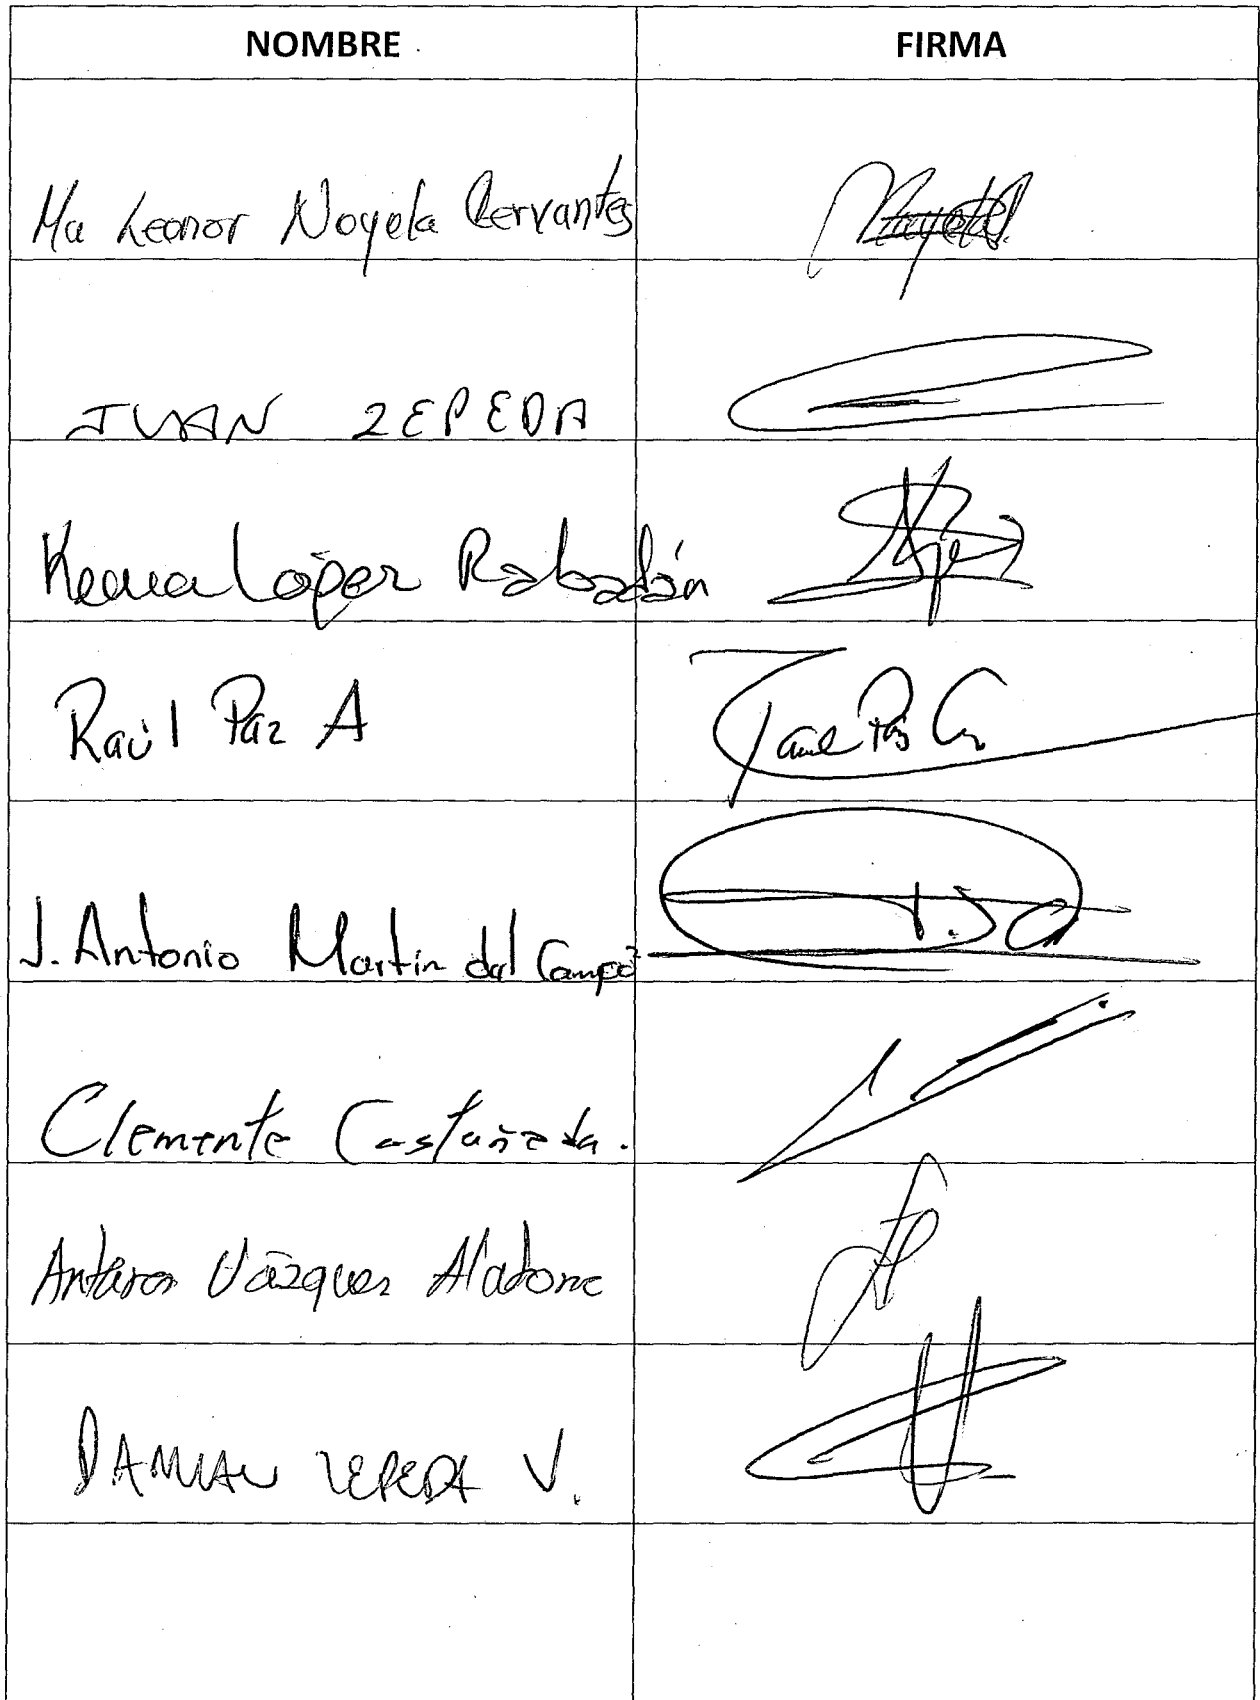 NOMBRE FIRMA
Ma Leonor Noyola Cervantes
JUAN ZEPEDA
Kenia López Rabadán
Raúl Paz A
J. Antonio Martín del Campo
Clemente Castañeda.
Antares Vázquez Alatorre
DAMIAN ZEPEDA V.